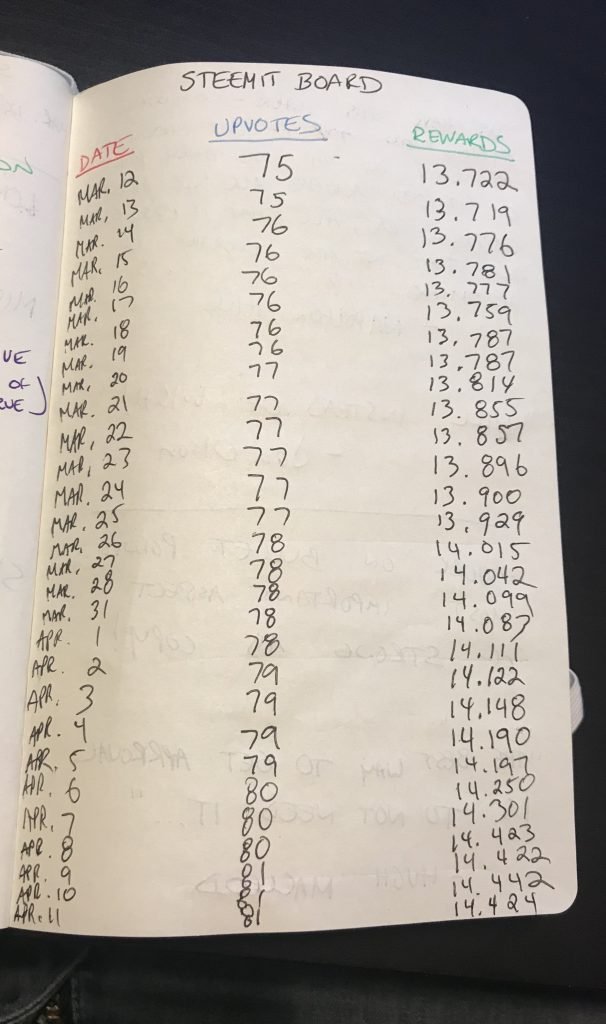 STEEMIT BOARD
DATE UPVOTES REWARDS
MAR. 12 75 13.722
MAR. 13 75 13.719
MAR. 14 76 13.776
MAR. 15 76 13.781
MAR. 16 76 13.777
MAR. 17 76 13.759
MAR. 18 76 13.787
MAR. 19 76 13.787
MAR. 20 77 13.814
MAR. 21 77 13.855
MAR. 22 77 13.857
MAR. 23 77 13.896
MAR. 24 77 13.900
MAR. 25 77 13.929
MAR. 26 78 14.015
MAR. 27 78 14.042
MAR. 28 78 14.099
MAR. 31 78 14.087
APR. 1 78 14.111
APR. 2 79 14.122
APR. 3 79 14.148
APR. 4 79 14.190
APR. 5 79 14.197
APR. 6 80 14.250
APR. 7 80 14.301
APR. 8 80 14.423
APR. 9 81 14.422
APR. 10 81 14.442
APR. 11 81 14.424